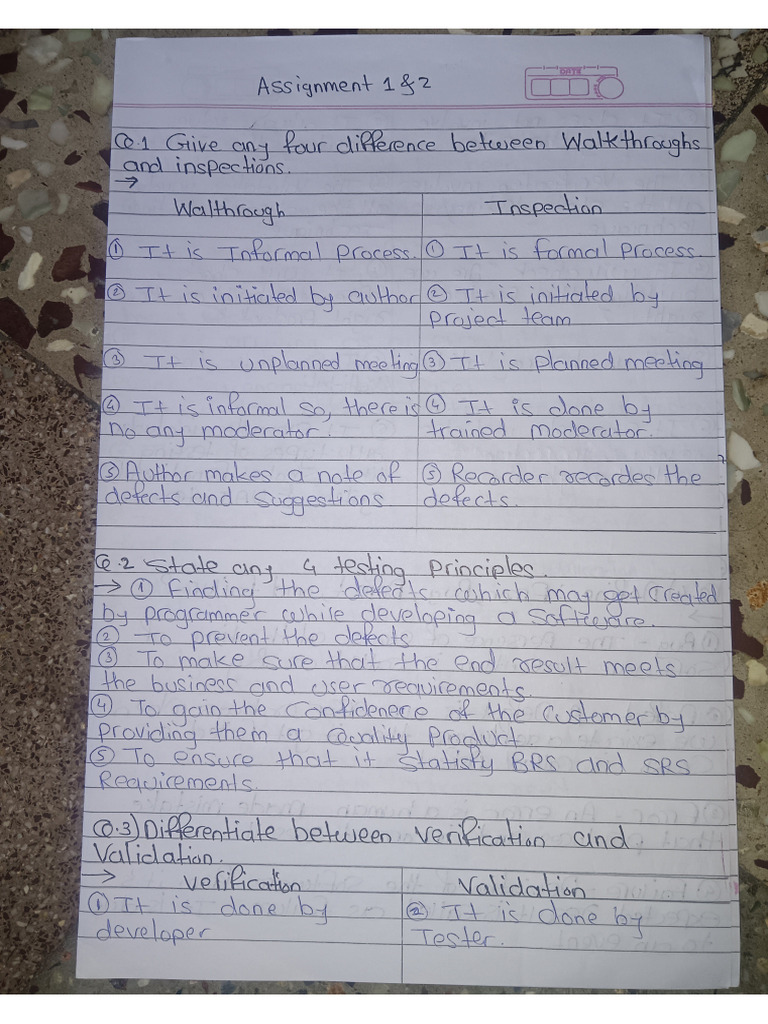 Assignment 1 & 2
DATE
Q.1 Give any four difference between Walkthroughs
and inspections.
→
Walthrough
Inspection
① It is Informal Process.
① It is formal Process.
② It is initiated by author
② It is initiated by
Project team
③ It is unplanned meeting
③ It is Planned meeting
④ It is informal so, there is
no any moderator.
④ It is done by
trained moderator.
⑤ Author makes a note of
defects and suggestions
⑤ Recorder recordes the
defects.
Q.2 State any 4 testing Principles.
→ ① Finding the defects which may get Created
by Programmer while developing a Software.
② To prevent the defects
③ To make sure that the end result meets
the business and user requirements.
④ To gain the Confidenece of the Customer by
Providing them a Quality Product
⑤ To ensure that it Statisfy BRS and SRS
Requirements.
Q.3) Differentiate between verification and
validation.
→
Verification
Validation
① It is done by
developer
② It is done by
Tester.